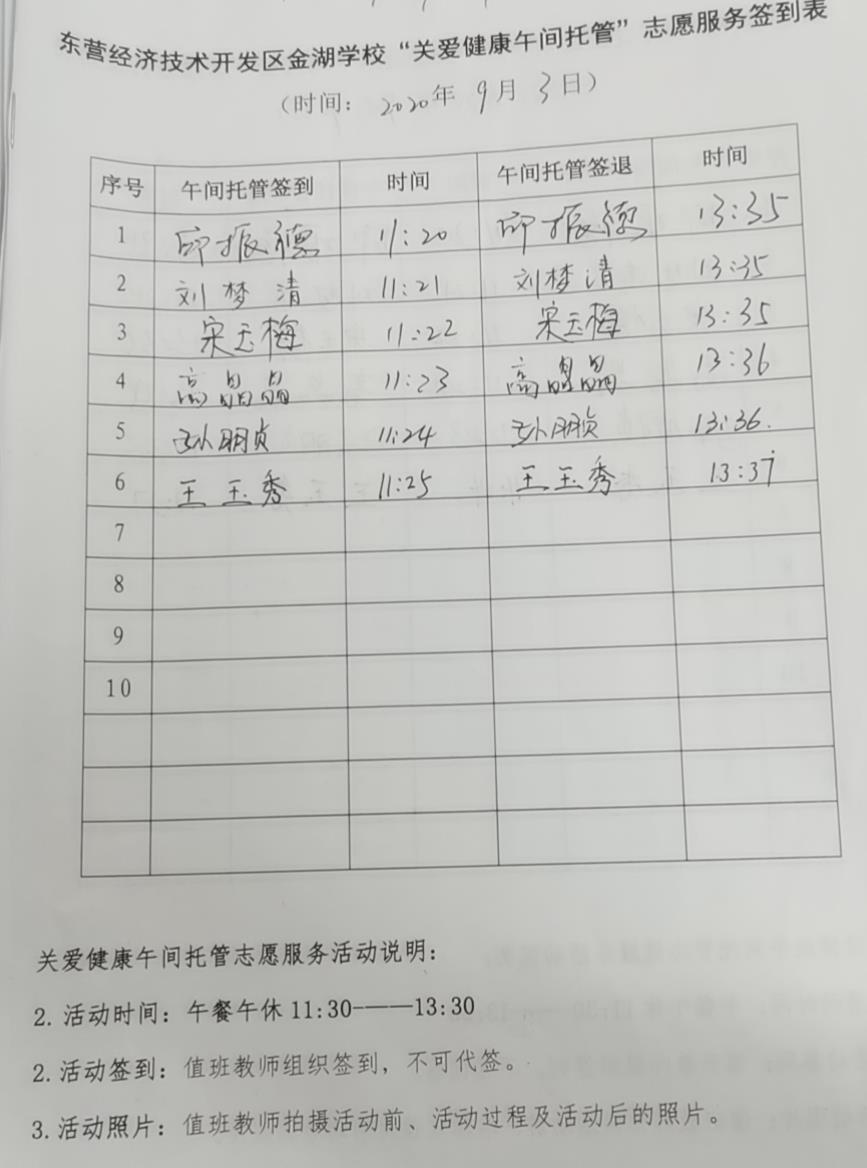 东营经济技术开发区金湖学校“关爱健康午间托管”志愿服务签到表
（时间：2020年 9月 3日）
序号 午间托管签到 时间 午间托管签退 时间
1 邱振德 11:20 邱振德 13:35
2 刘梦清 11:21 刘梦清 13:35
3 宋玉梅 11:22 宋玉梅 13:35
4 高晶晶 11:23 高晶晶 13:36
5 孙朋贞 11:24 孙朋贞 13:36.
6 王玉秀 11:25 王玉秀 13:37
7
8
9
10
关爱健康午间托管志愿服务活动说明：
2. 活动时间：午餐午休 11:30——13:30
2. 活动签到：值班教师组织签到，不可代签。
3. 活动照片：值班教师拍摄活动前、活动过程及活动后的照片。